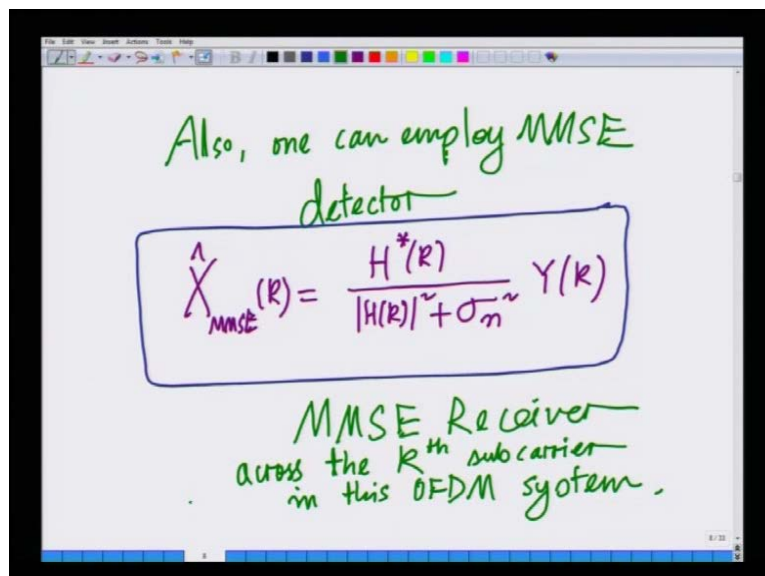 File Edit View Insert Actions Tools Help
Also, one can employ MMSE
detector
X̂_MMSE (k) = H*(k) / (|H(k)|² + σ_n²) Y(k)
MMSE Receiver
across the kth subcarrier
in this OFDM system.
8/33
8